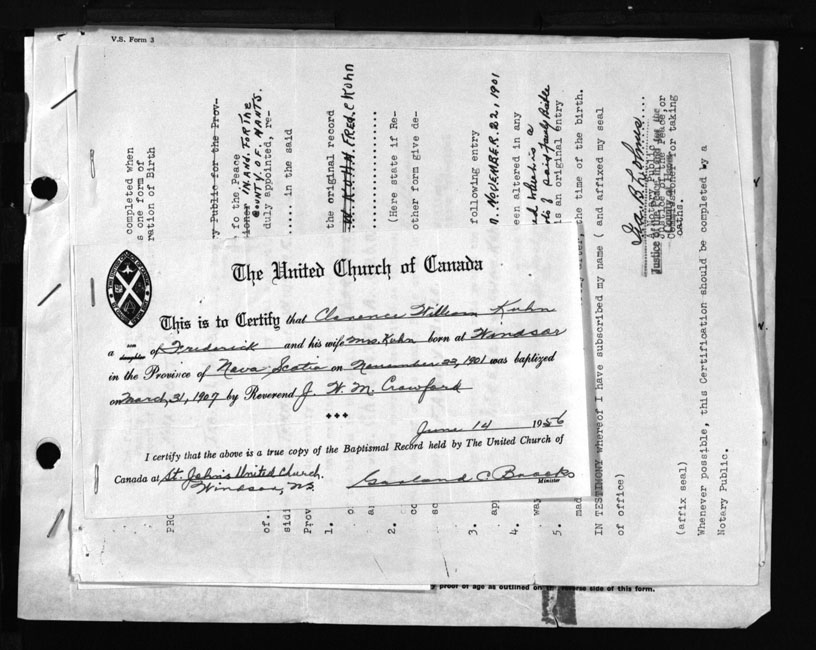 V.S. Form 3
The United Church of Canada
This is to Certify that Clarence William Kuhn
a son daughter of Frederick and his wife Mrs. Kuhn born at Windsor
in the Province of Nova Scotia on November 22, 1901 was baptized
on March, 31, 1907 by Reverend J. W. M. Crawford
June 14 1956
I certify that the above is a true copy of the Baptismal Record held by The United Church of
Canada at St. John's United Church.
Windsor, NS.
Garland C. Brooks
Minister
completed when
s one form of
ration of Birth
y Public for the Prov-
f o the Peace
IN AND FOR THE
COUNTY OF HANTS.
duly appointed, re-
..... in the said
the original record
KUHN, FRED. C KUHN
(Here state if Re-
other form give de-
following entry
NOVEMBER. 22, 1901
een altered in any
is an original entry
the time of the birth.
IN TESTIMONY whereof I have subscribed my name ( and affixed my seal
of office)
Justice of the Peace in and for the
Commissioner for taking
oaths.
(affix seal)
Whenever possible, this Certification should be completed by a
Notary Public.
PRO
of.
sidi
Prov
1.
2.
3.
4.
5.
y proof of age as outlined on the reverse side of this form.